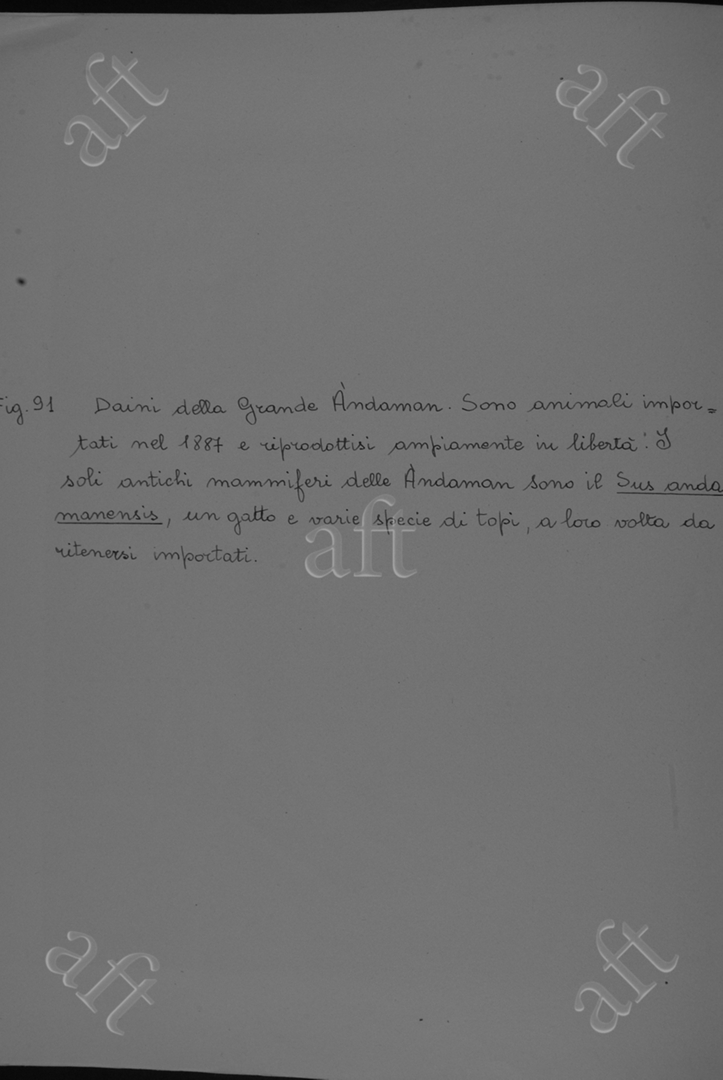 aft
aft
Fig. 91 Daini della Grande Àndaman. Sono animali impor=
tati nel 1887 e riprodottisi ampiamente in libertà. I
soli antichi mammiferi delle Àndaman sono il Sus anda
manensis, un gatto e varie specie di topi, a loro volta da
ritenersi importati.
aft
aft
aft